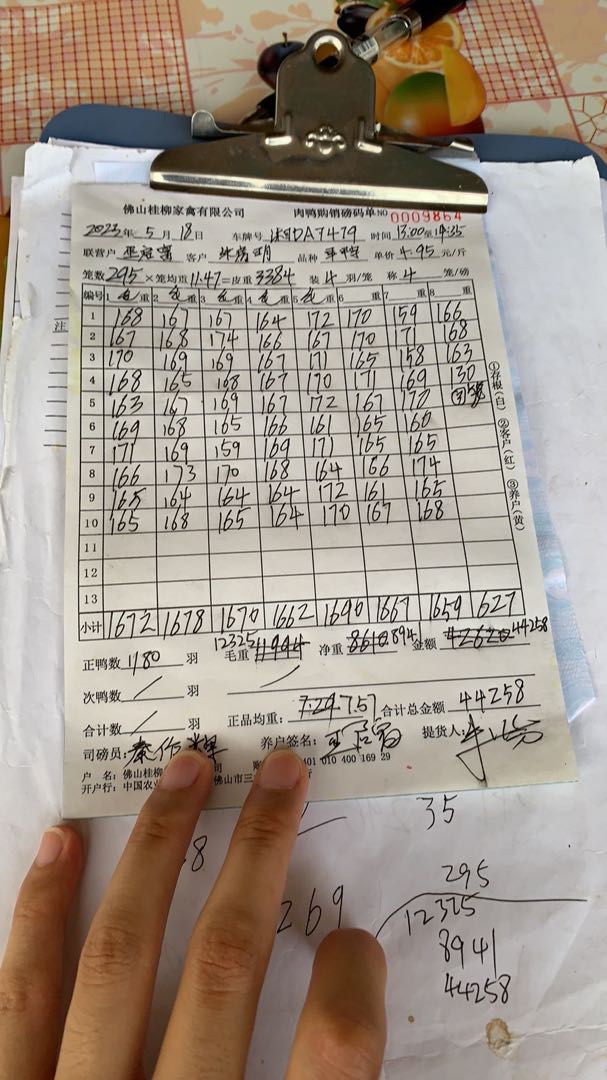 佛山桂柳家禽有限公司 肉鸭购销磅码单 NO 0009864
2023年 5月 18日 车牌号 DA7479 时间 13:00至14:35
联营户 客户 品种 单价 4.95 元/斤
笼数 295 ×笼均重 11.47 =皮重 3384 装 4 羽/笼 称 4 笼/磅
编号 1 重 2 重 3 重 4 重 5 重 6 重 7 重 8 重
1 168 167 167 164 172 170 159 166
2 167 168 174 166 167 170 171 168
3 170 169 169 167 171 165 158 163
4 168 165 168 167 170 171 169 130
5 163 167 169 167 172 167 170
6 169 168 165 166 161 165 160
7 171 169 159 169 171 165 165
8 166 173 170 168 164 166 174
9 165 164 164 164 172 161 165
10 165 168 165 164 170 167 168
11
12
13
小计 1672 1678 1670 1662 1690 1667 1659 627
①存根(白) ②客户(红) ③养户(黄)
正鸭数 1180 羽 毛重 11994 12325 净重 8610 8941 金额 42620 44258
次鸭数 / 羽 /
合计数 / 羽 正品均重: 7.29 7.57 合计总金额 44258
司磅员: 养户签名: 提货人:
户 名: 佛山桂柳 司 401 010 400 169 29
开户行: 中国农业 佛山市三 行
注
35
8
269
295
12325
8941
44258